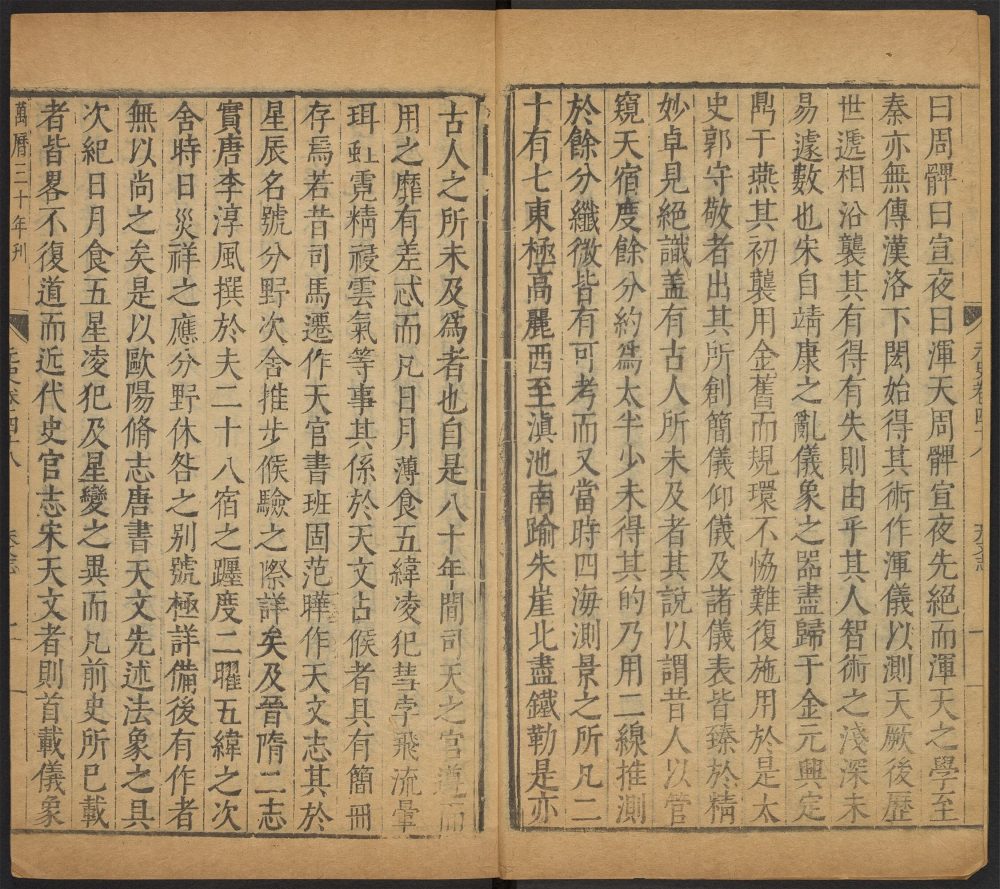 曰周髀曰宣夜曰渾天周髀宣夜先絕而渾天之學至
秦亦無傳漢洛下閎始得其術作渾儀以測天厥後歷
世遞相沿襲其有得有失則由乎其人智術之淺深未
易遽數也宋自靖康之亂儀象之器盡歸于金元興定
鼎于燕其初襲用金舊而規環不恊難復施用於是太
史郭守敬者出其所創簡儀仰儀及諸儀表皆臻於精
妙卓見絕識盖有古人所未及者其說以謂昔人以管
窺天宿度餘分約爲太半少未得其的乃用二線推測
於餘分纖微皆有可考而又當時四海測景之所凡二
十有七東極高麗西至滇池南踰朱崖北盡鐵勒是亦
古人之所未及爲者也自是八十年間司天之官遵而
用之靡有差忒而凡日月薄食五緯凌犯彗孛飛流暈
珥虹霓精祲雲氣等事其係於天文占候者具有簡冊
存焉若昔司馬遷作天官書班固范曄作天文志其於
星辰名號分野次舍推步候驗之際詳矣及晉隋二志
實唐李淳風撰於夫二十八宿之躔度二曜五緯之次
舍時日災祥之應分野休咎之别號極詳備後有作者
無以尚之矣是以歐陽脩志唐書天文先述法象之具
次紀日月食五星凌犯及星變之異而凡前史所已載
者皆畧不復道而近代史官志宋天文者則首載儀象
萬曆三十年刊